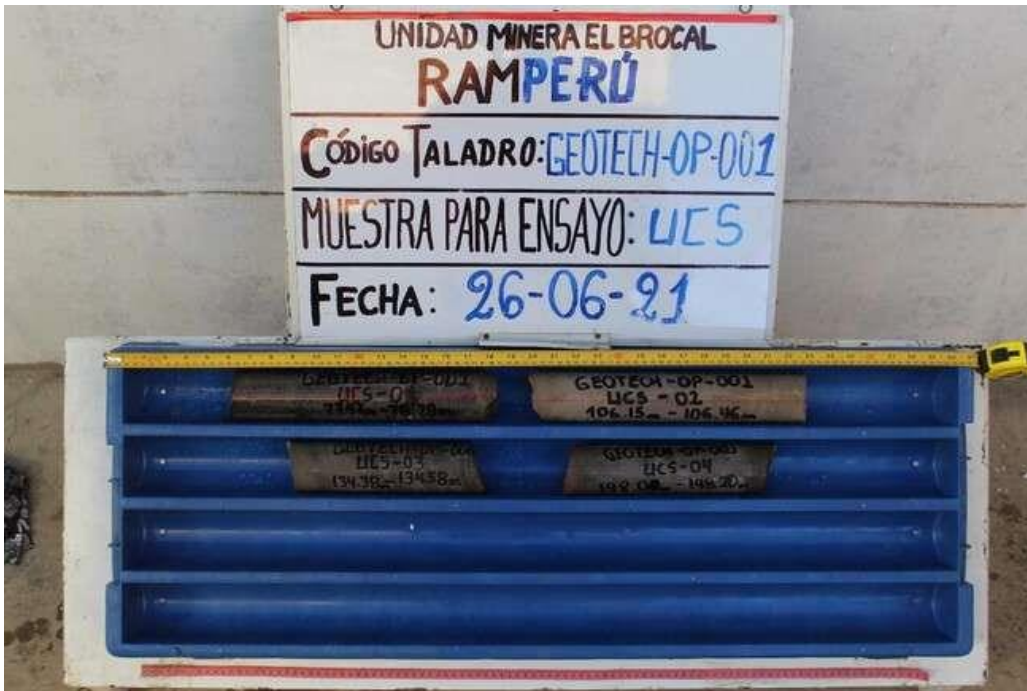 UNIDAD MINERA EL BROCAL
RAMPERÚ
CÓDIGO TALADRO: GEOTECH-OP-001
MUESTRA PARA ENSAYO: UCS
FECHA: 26-06-21
GEOTECH-OP-001
UCS-01
GEOTECH-OP-001
UCS-02
106.15m-106.46m
UCS-03
134.38m-134.58m
GEOTECH-OP-001
UCS-04
198.00m-198.20m